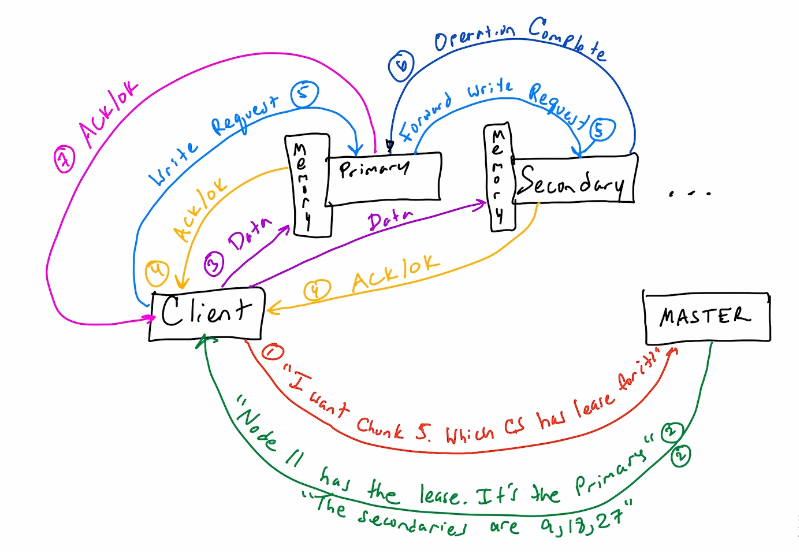 6 Operation Complete
7 Ack/ok
Write Request 5
Forward Write Request 5
Memory
Primary
Memory
Secondary
...
4 Ack/ok
3 Data
Data
4 Ack/ok
Client
MASTER
1 "I want Chunk 5. Which CS has lease for it?"
"Node 11 has the lease. It's the Primary" 2
"The secondaries are 9,18,27" 2